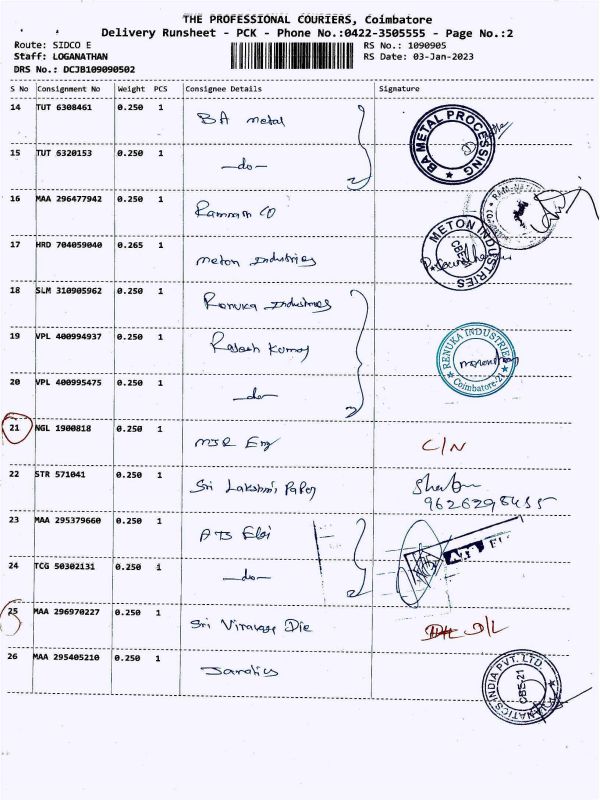 THE PROFESSIONAL COURIERS, Coimbatore
Delivery Runsheet - PCK - Phone No.:0422-3505555 - Page No.:2
Route: SIDCO E RS No.: 1090905
Staff: LOGANATHAN RS Date: 03-Jan-2023
DRS No.: DCJB109090502
S No Consignment No Weight PCS Consignee Details Signature
14 TUT 6308461 0.250 1 BA metal BA METAL PROCESSING
15 TUT 6320153 0.250 1 —do—
16 MAA 296477942 0.250 1 CO
17 HRD 704059040 0.265 1 meton Industries METON INDUSTRIES CBE
18 SLM 310905962 0.250 1 Renuka Industries
19 VPL 400994937 0.250 1 Rajesh Kumar RENUKA INDUSTRIES Coimbatore-21
20 VPL 400995475 0.250 1 —do—
21 NGL 1900818 0.250 1 MJR Eng C/N
22 STR 571041 0.250 1 Sri Lakshmi Paper
23 MAA 295379660 0.250 1
24 TCG 50302131 0.250 1 —do—
25 MAA 296970227 0.250 1 Sri Die D/L
26 MAA 295405210 0.250 1 INDIA PVT. LTD. CBE-21